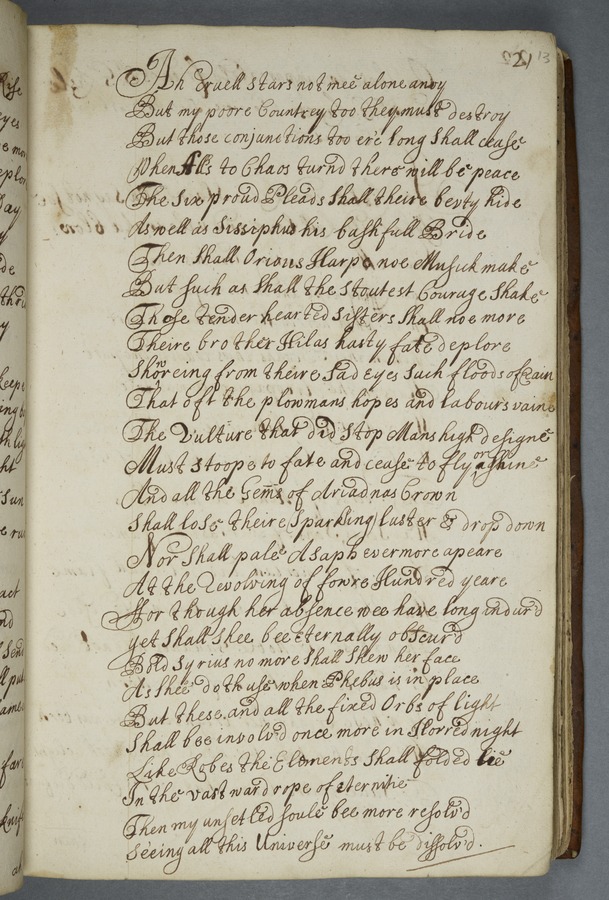 21 13
Ah Cruell stars not mee alone anoy
But my poore Countrey too they must destroy
But those conjunctions too ere long shall cease
When All's to Chaos turnd there will be peace
The six proud Pleads shall theire bevty hide
As well as Sissiphus his bashfull Bride
Then shall Orions Harp noe Musick make
But such as shall the stoutest Courage shake
Those tender hearted Sisters shall noe more
Theire brother Hilas hasty fate deplore
Showreing from theire sad eyes such floods of Rain
That oft the plowmans hopes and labours vaine
The Vulture that did stop Mans high designe
Must stoope to fate and cease to fly or shine
And all the Gems of Ariadnas Crown
Shall lose theire Sparkling luster & drop down
Nor shall pale Asaph evermore apeare
At the Revolving of fowre Hundred yeare
For though her absence wee have long indurd
yet shall shee bee eternally obscur'd
Bold Syrius no more shall shew her face
As shee doth use when Phebus is in place
But these and all the fixed Orbs of light
Shall bee involv'd once more in Horred night
Like Robes the Elements shall folded lie
In the vast wardrope of eternitie
Then my unsetled soule bee more resolv'd
Seeing all this Universe must be dissolv'd.